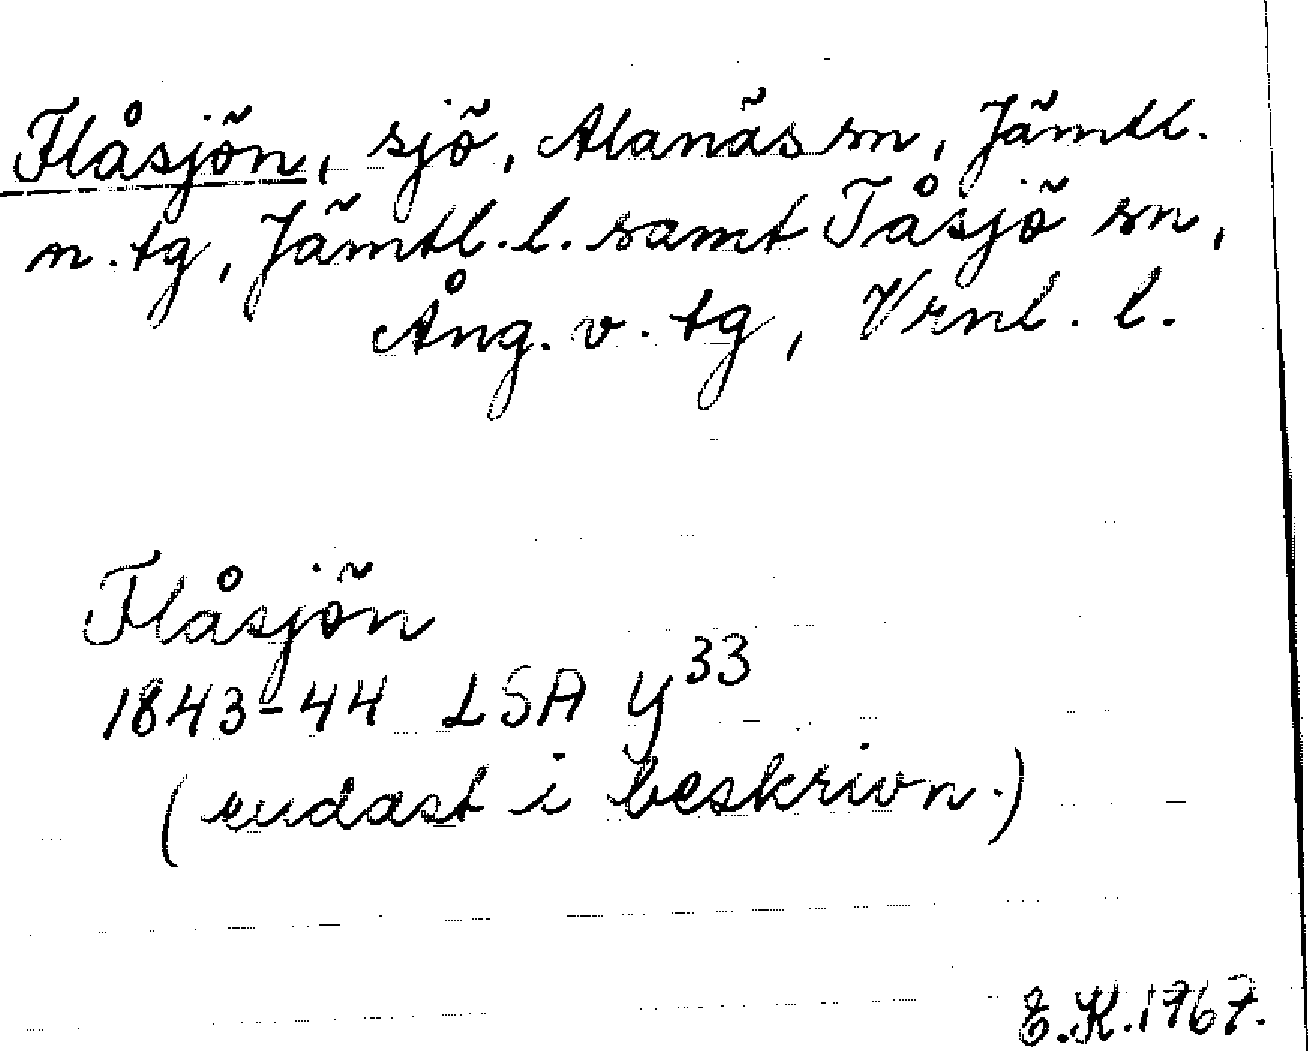 Flåsjön, sjö, Alanäs sn, Jämtl.
n. tg, Jämtl. l. samt Tåsjö sn,
Ång. v. tg, Vrnl. l.
Flåsjön
1843-44 LSA Y33
(endast i beskrivn.)
E.K. 1967.